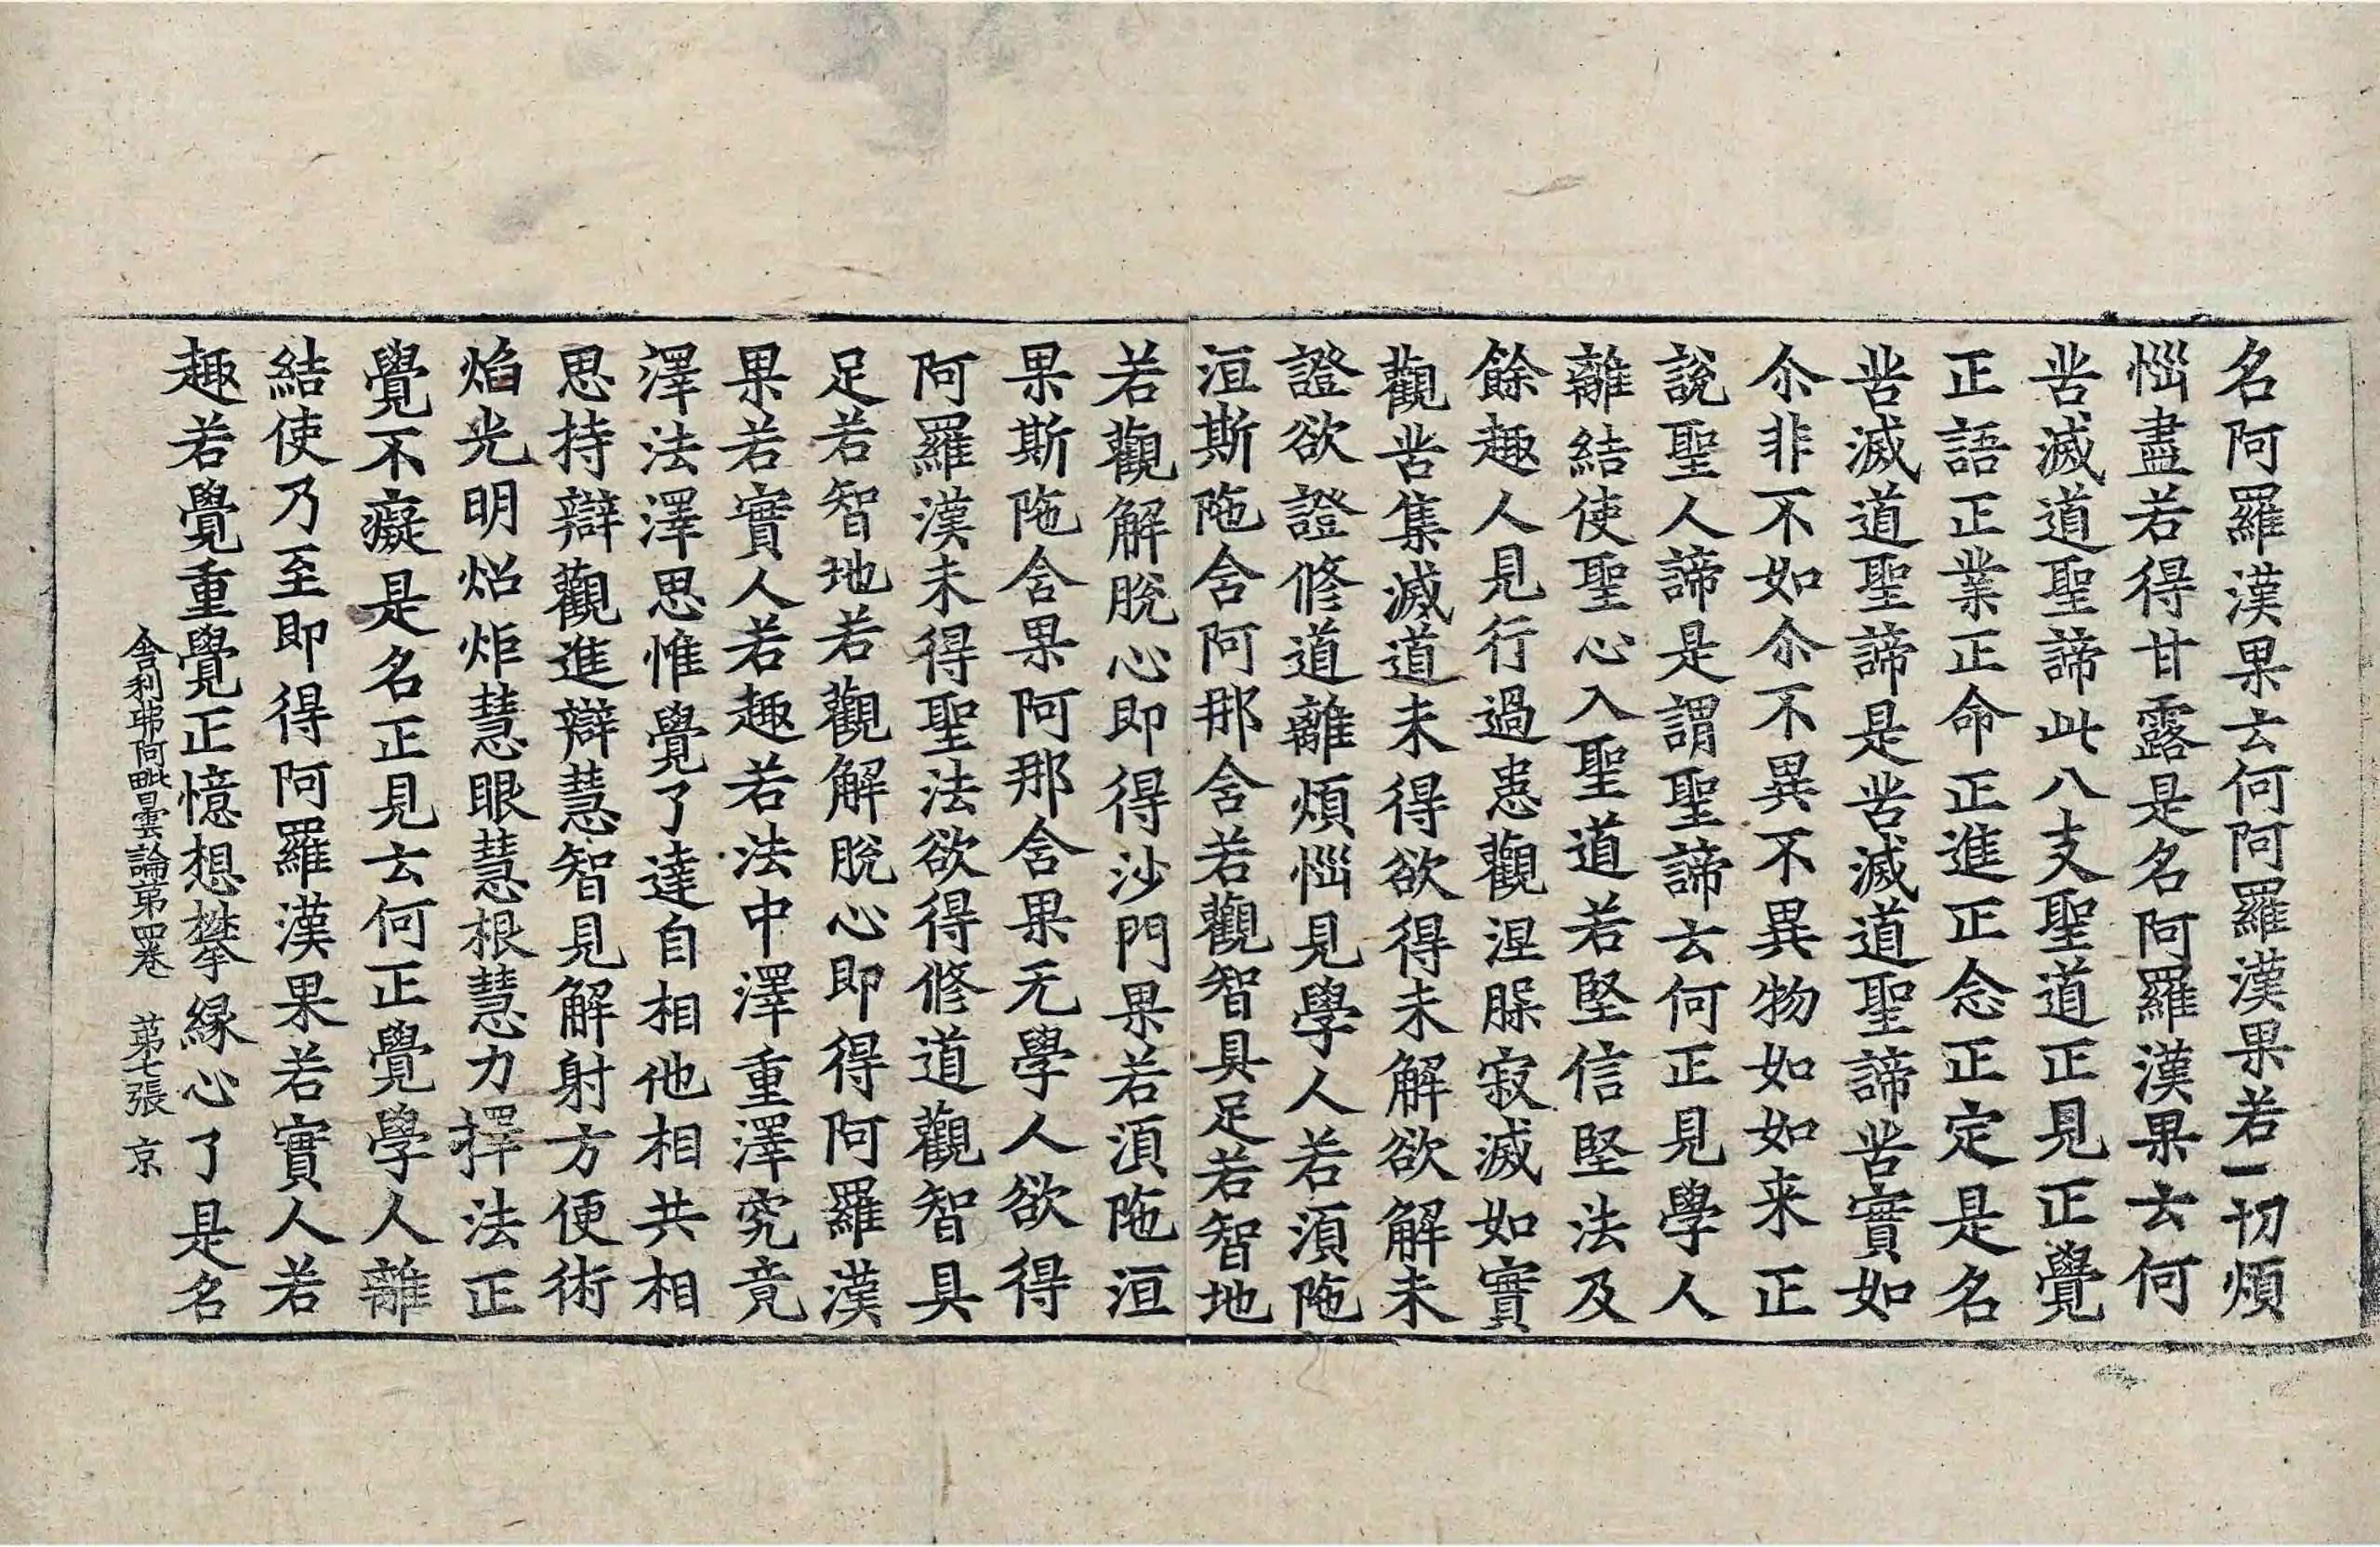 名阿羅漢果云何阿羅漢果若一切煩
惱盡若得甘露是名阿羅漢果云何
苦滅道聖諦此八支聖道正見正覺
正語正業正命正進正念正定是名
苦滅道聖諦是苦滅道聖諦苦實如
尒非不如尒不異不異物如如来正
說聖人諦是謂聖諦云何正見學人
離結使聖心入聖道若堅信堅法及
餘趣人見行過患觀涅槃寂滅如實
觀苦集滅道未得欲得未解欲解未
證欲證修道離煩惱見學人若湏陁
洹斯陁含阿那含若觀智具足若智地
若觀解脫心即得沙門果若湏陁洹
果斯陁含果阿那含果无學人欲得
阿羅漢未得聖法欲得修道觀智具
足若智地若觀解脫心即得阿羅漢
果若實人若趣若法中澤重澤究竟
澤法澤思惟覺了達自相他相共相
思持辯觀進辯慧智見解射方便術
焰光明炤炬慧眼慧根慧力擇法正
覺不癡是名正見云何正覺學人離
結使乃至即得阿羅漢果若實人若
趣若覺重覺正憶想攀縁心了是名
舎利弗阿毗曇論苐四卷 苐七張 京